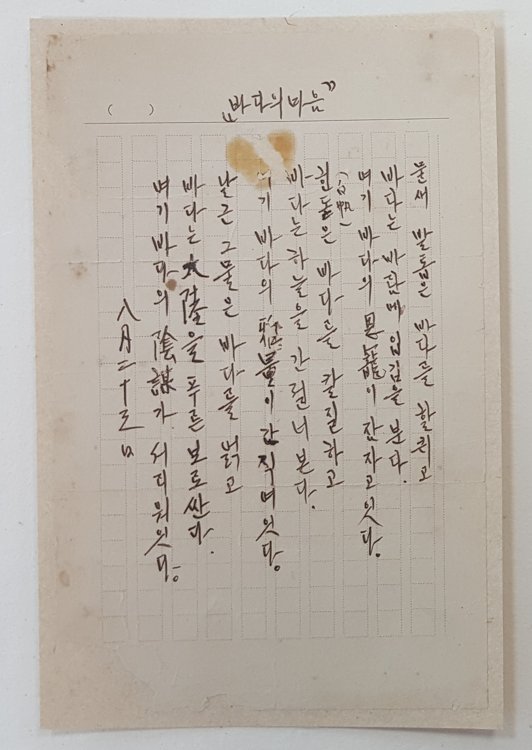 "바다의마음"
( )
물새 발톱은 바다를 할퀴고
바다는 바람에 입김을 분다.
여기 바다의 恩寵이 잠자고잇다.
흰돛은 바다를 칼질하고
(白帆)
바다는 하늘을 간질너본다.
기 바다의 雅量이 간직여잇다.
날근 그물은 바다를 얽고
바다는 大陸을 푸른 보로싼다.
여기 바다의 陰謀가 서리워잇다.
八月二十三日